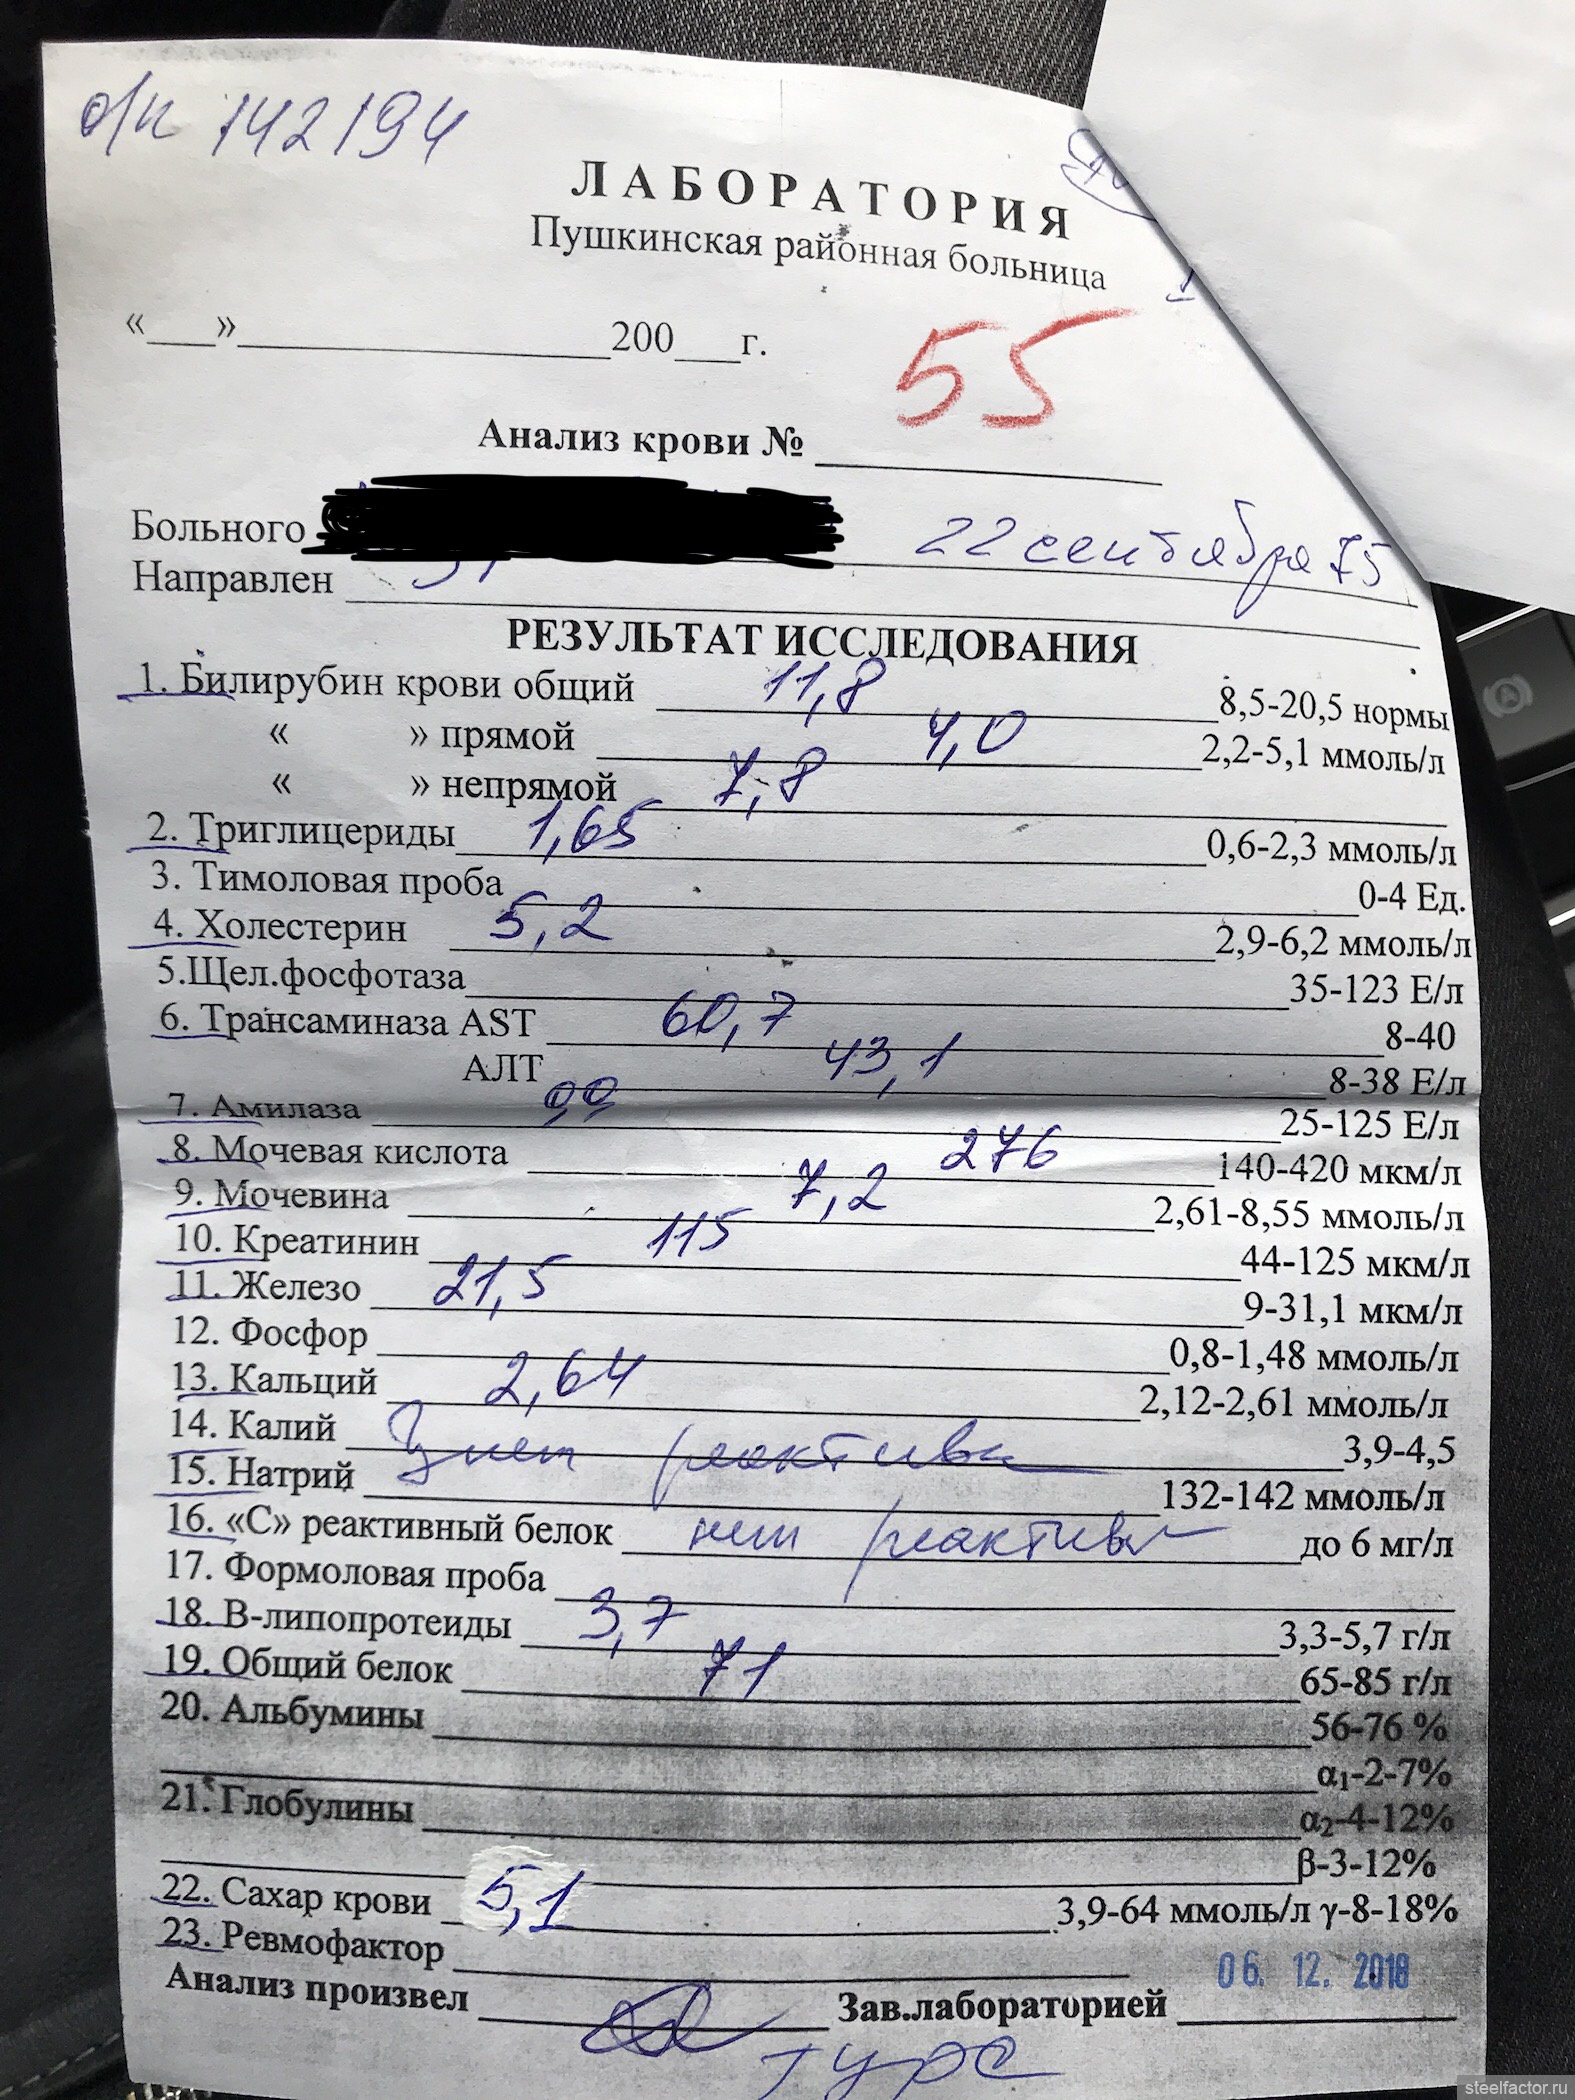 142194
ЛАБОРАТОРИЯ
Пушкинская районная больница
«___»___200___г.
55
Анализ крови №
Больного 22 сентября 75
Направлен
РЕЗУЛЬТАТ ИССЛЕДОВАНИЯ
1. Билирубин крови общий 11,8 8,5-20,5 нормы
« » прямой 4,0 2,2-5,1 ммоль/л
« » непрямой 7,8
2. Триглицериды 1,65 0,6-2,3 ммоль/л
3. Тимоловая проба 0-4 Ед.
4. Холестерин 5,2 2,9-6,2 ммоль/л
5.Щел.фосфотаза 35-123 Е/л
6. Трансаминаза AST 60,7 8-40
АЛТ 43,1 8-38 Е/л
7. Амилаза 99 25-125 Е/л
8. Мочевая кислота 276 140-420 мкм/л
9. Мочевина 7,2 2,61-8,55 ммоль/л
10. Креатинин 115 44-125 мкм/л
11. Железо 21,5 9-31,1 мкм/л
12. Фосфор 0,8-1,48 ммоль/л
13. Кальций 2,64 2,12-2,61 ммоль/л
14. Калий нет реактива 3,9-4,5
15. Натрий 132-142 ммоль/л
16. «С» реактивный белок нет реактива до 6 мг/л
17. Формоловая проба
18. В-липопротеиды 3,7 3,3-5,7 г/л
19. Общий белок 71 65-85 г/л
20. Альбумины 56-76 %
α1-2-7%
21. Глобулины α2-4-12%
β-3-12%
22. Сахар крови 5,1 3,9-64 ммоль/л γ-8-18%
23. Ревмофактор
06. 12. 2018
Анализ произвел Зав.лабораторией
steelfactor.ru